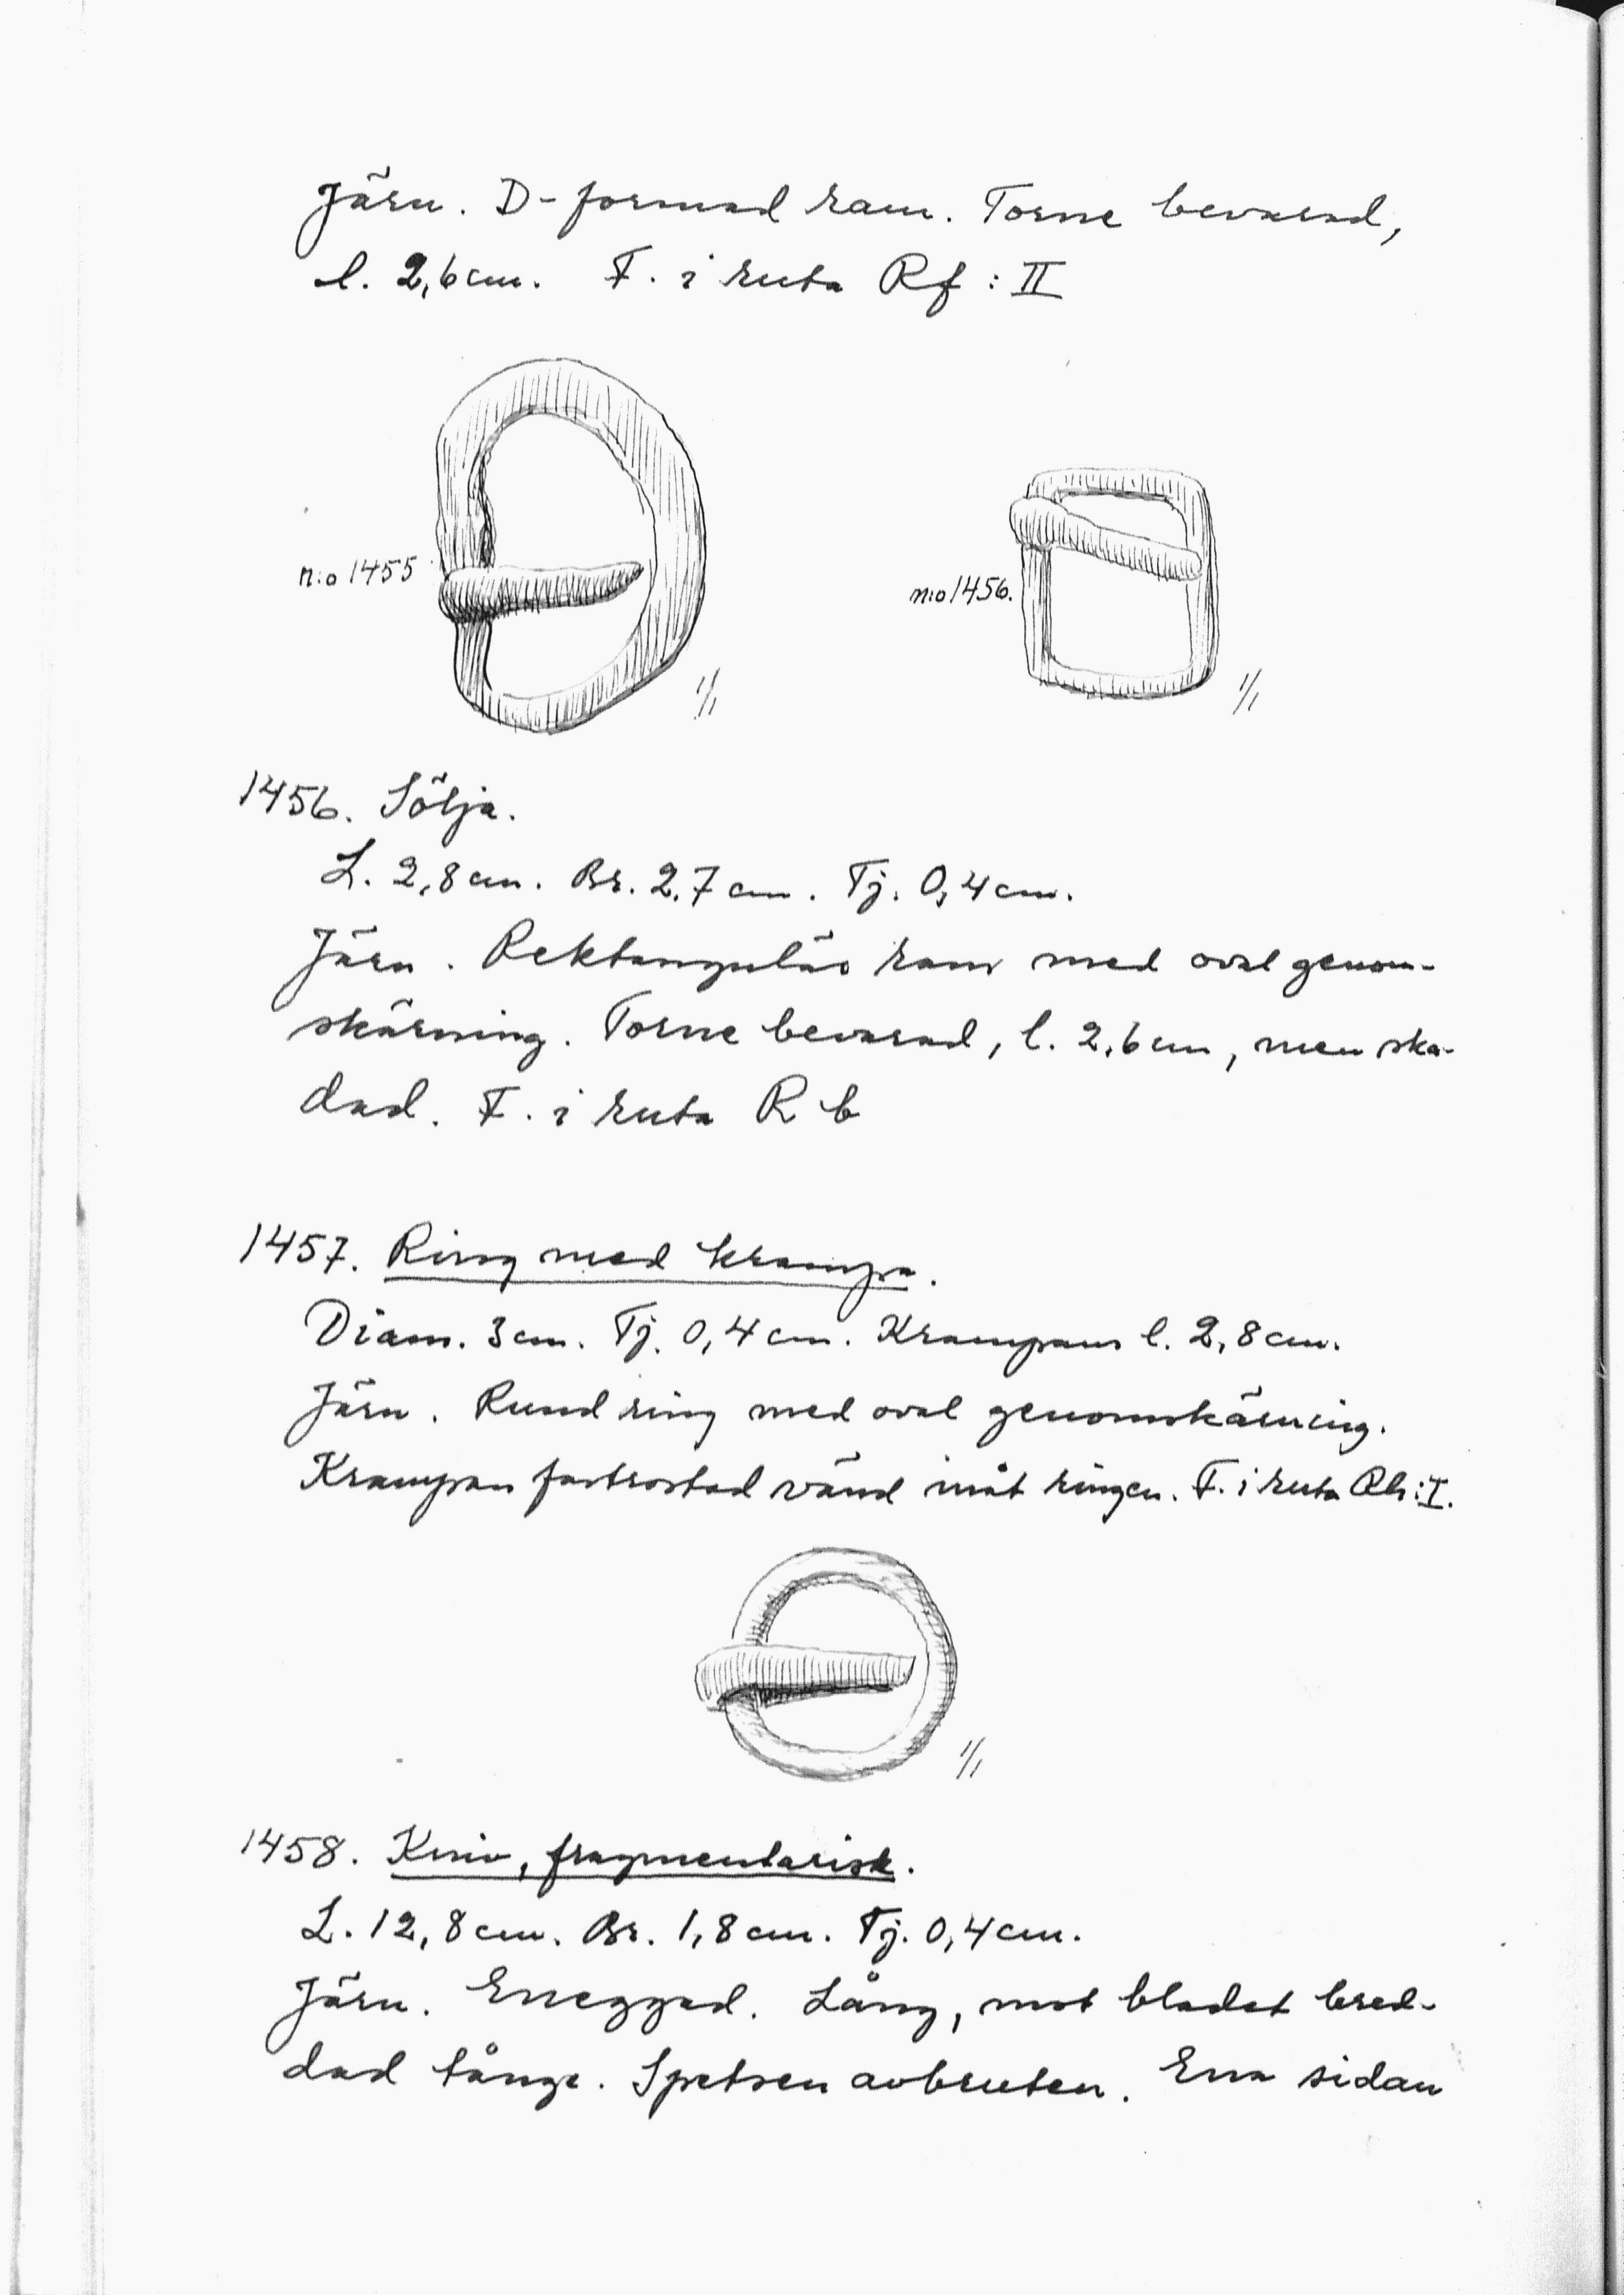 Järn. D-formad ram. Torne bevarad,
l. 2,6 cm. F. i ruta Rf : II
n:o 1455
n:o 1456.
1/1
1/1
1456. Sölja.
L. 2,8 cm. Br. 2,7 cm. Tj. 0,4 cm.
Järn. Rektangulär ram med oval genom-
skärning. Torne bevarad, l. 2,6 cm, men ska-
dad. F. i ruta R b
1457. Ring med krampa.
Diam. 3 cm. Tj. 0,4 cm. Krampans l. 2,8 cm.
Järn. Rund ring med oval genomskärning.
Krampan fastrostad vänd inåt ringen. F. i ruta :I.
1/1
1458. Kniv, fragmentarisk.
L. 12,8 cm. Br. 1,8 cm. Tj. 0,4 cm.
Järn. Eneggad. Lång, mot bladet bred-
dad tånge. Spetsen avbruten. Ena sidan